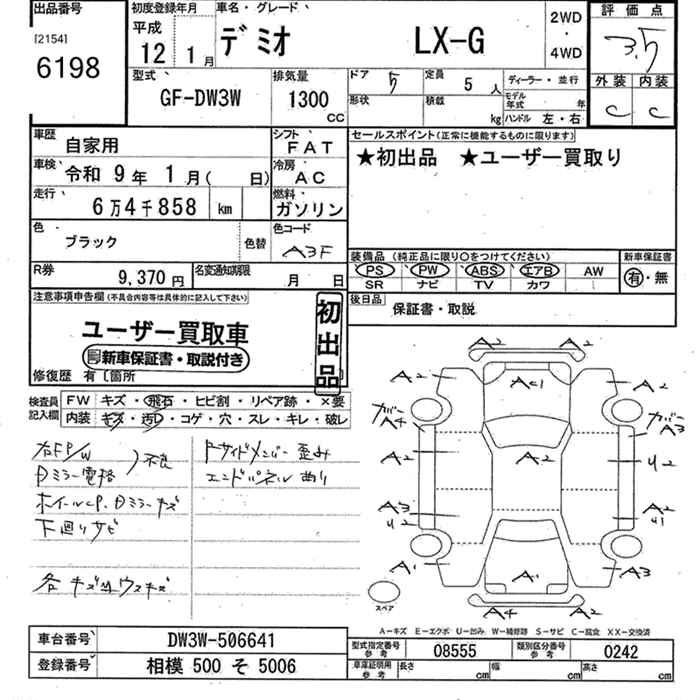 出品番号
[2154]
6198
初度登録年月
平成
12年 1月
車名・グレード、
デミオ LX-G
2WD
・
4WD
評価点
3.5
外装 内装
C C
型式、
GF-DW3W
排気量
1300
CC
ドア 5
定員 5 人
形状
積載 kg
ディーラー・並行
モデル年式 年
ハンドル 左・右
車歴
自家用
シフト、
FAT
車検、
令和 9年 1月( 日)
冷房
AC
走行、
6万4千858 km
燃料、
ガソリン
色、
ブラック
色替
色コード
A3F
R券
9,370円
名変通知期限
月 日
セールスポイント(正常に機能するものに限ります)
★初出品 ★ユーザー買取り
装備品(純正品に限り○をつけてください)
PS PW ABS エアB AW
SR ナビ TV カワ
新車保証書
有・無
後日品
保証書・取説
注意事項申告欄(不具合内容等は具体的に記入して下さい)
ユーザー買取車
新車保証書・取説付き
初出品
修復歴 有〔箇所
検査員記入欄
FW キズ・飛石・ヒビ割・リペア跡・×要
内装 キズ・汚レ・コゲ・穴・スレ・キレ・破レ
右FP/W
Dミラー電格
不良
ホイールCP、Dミラーキズ
下廻りサビ
各キズ凹ウスキズ
Fサイドメンバー歪み
エンドパネル曲り
A2 A2
A2 AC1 A2
カバー カバー
A4 A3
A2 A2 U2
A3 A2
U2 U1
A1 A1 A3
A4 A2
スペア
A-キズ E-エクボ U-凹み W-補修跡 S-サビ C-腐食 XX-交換済
車台番号、
DW3W-506641
登録番号、
相模 500 そ 5006
型式指定番号
参考
08555
類別区分番号
参考
0242
車庫証明用
参考
長さ cm
幅 cm
高さ cm